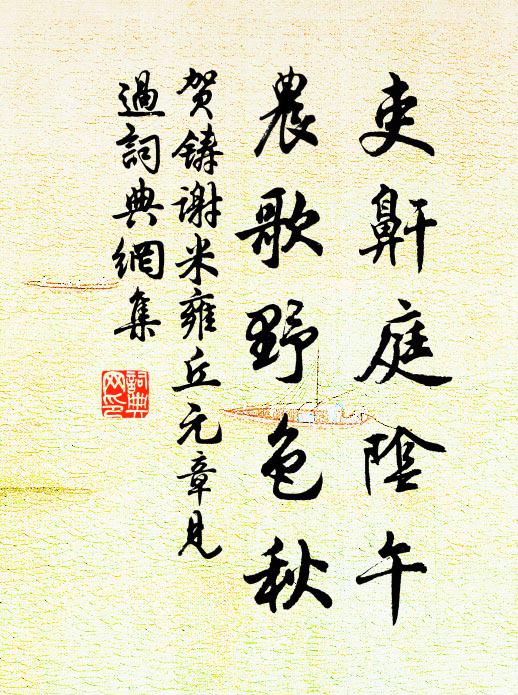 吏鼾庭陰午
農歌野色秋
贺鑄谢米雍丘元章見
過詞典網集
詞典
网印